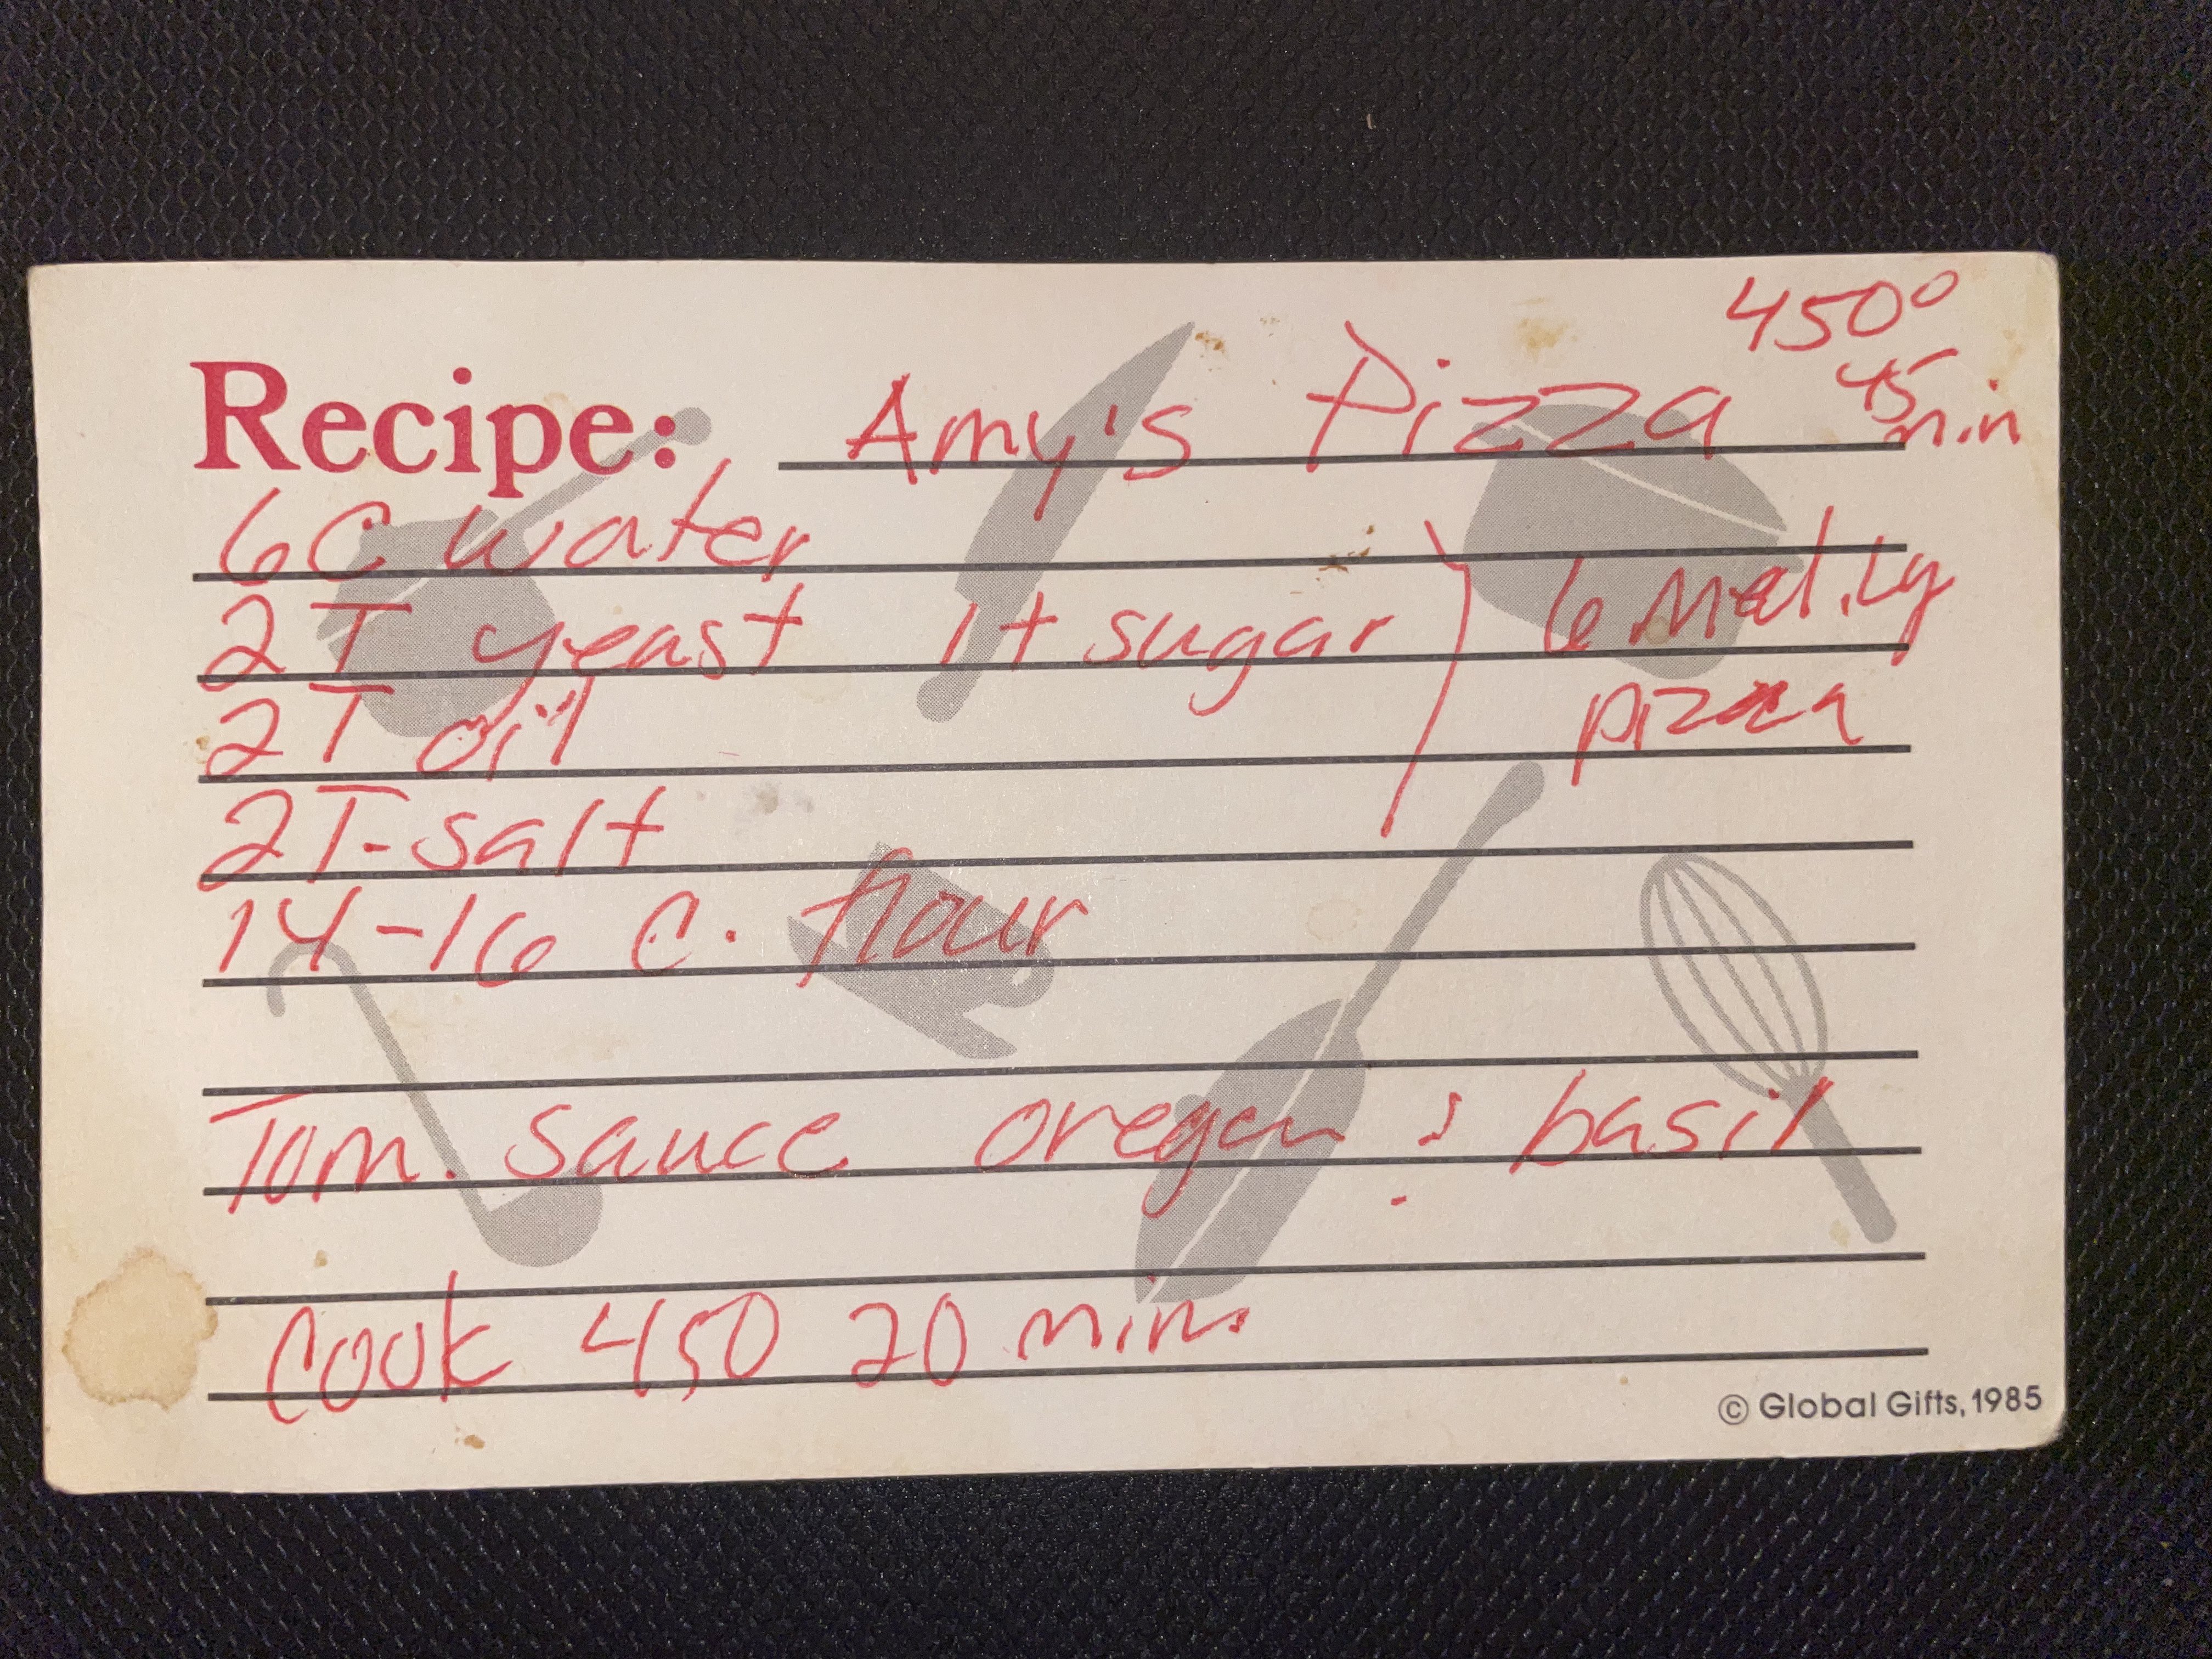 450°
Recipe: Amy's Pizza 45 min
6 C water
2 T yeast 1 t sugar } 6 Med. Lg
2 T oil pizza
2 T- salt
14-16 C. flour
Tom. sauce oregan & basil
Cook 450 20 min.
© Global Gifts, 1985